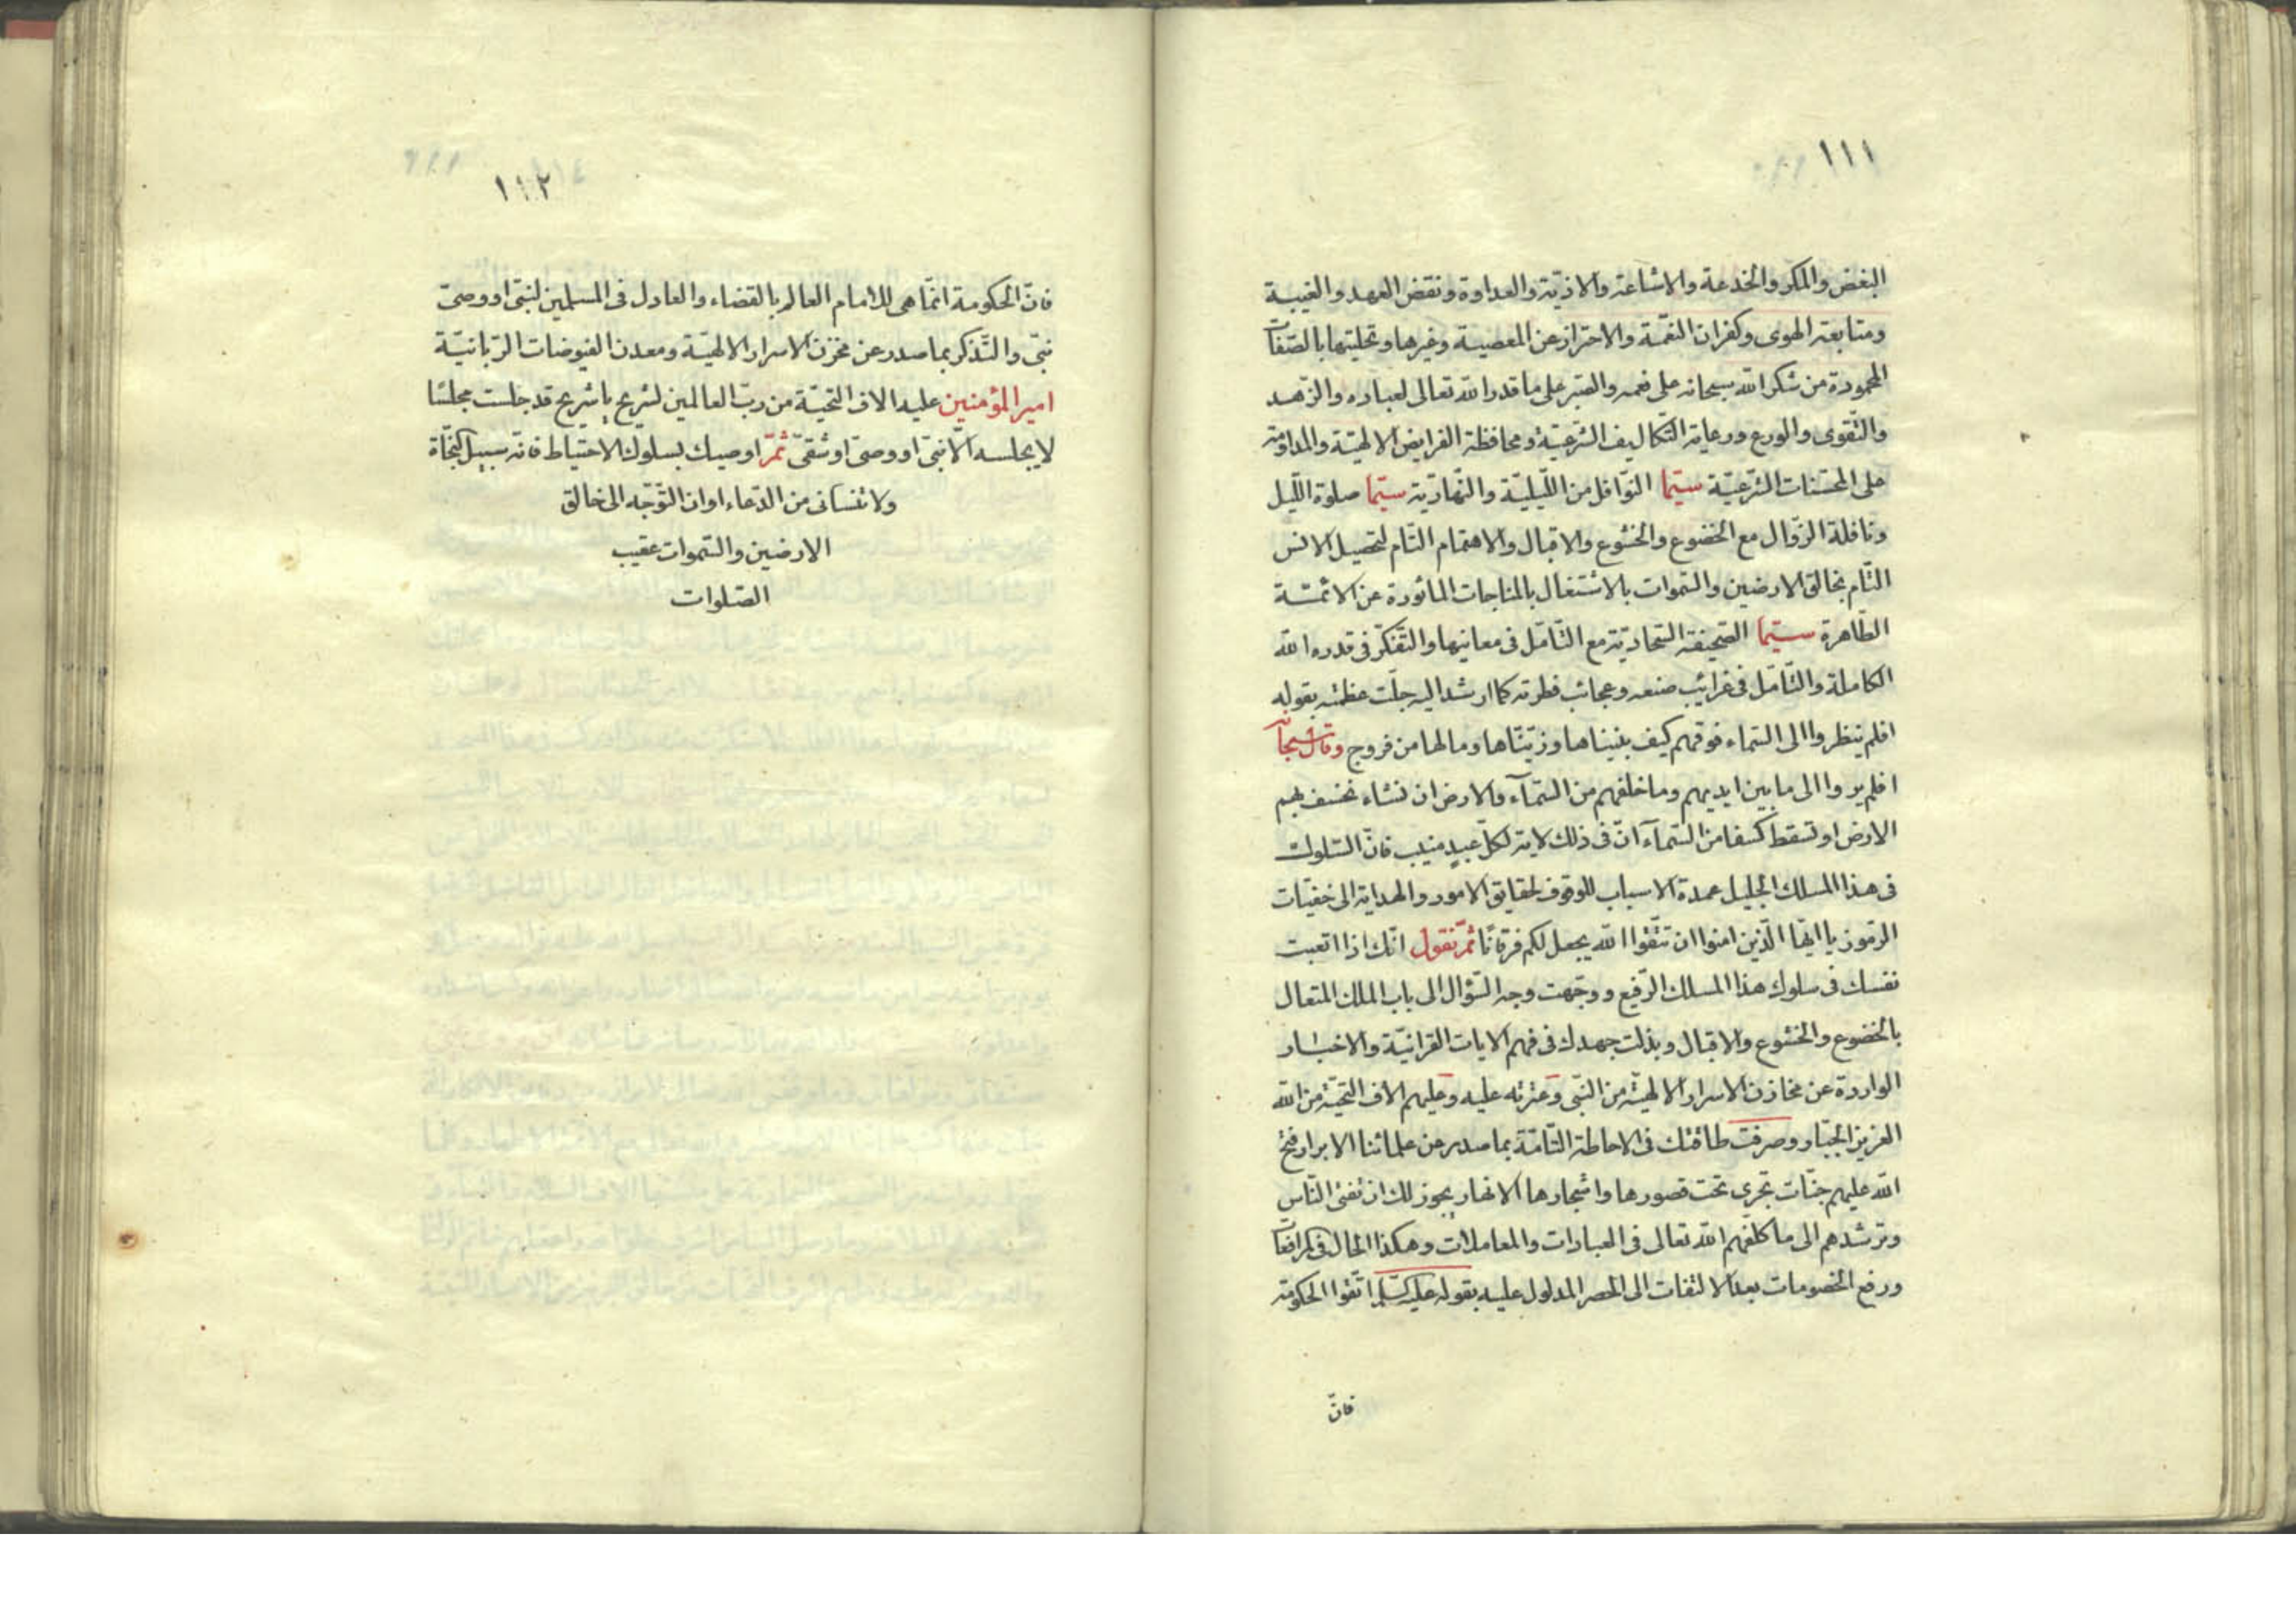 ١١١
البغض والمكر والخدعة والاشاعة والاذيّة والعداوة ونقض العهد والغيبة
ومتابعة الهوى وكفران النعمة والاحتراز عن المعصية وغيرها وتحليتها بالصّفات
المحمودة من شكر الله سبحانه على نعمه والصّبر على ما قدر الله تعالى لعباده والزّهد
والتّقوى والورع ورعاية التّكاليف الشّرعيّة ومحافظة الفرايض الالهيّة والمداومة
على المحسّنات الشّرعيّة سيّما النّوافل من اللّيليّة والنّهاريّة سيّما صلوة اللّيل
ونافلة الزّوال مع الخضوع والخشوع والاقبال والاهتمام التّام لتحصيل الانس
التّام بخالق الارضين والسّموات بالاشتغال بالمناجات الماثورة عن الائمّة
الطّاهرة سيّما الصّحيفة السّجاديّة مع التّامّل فى معانيها والتّفكّر فى قدرة الله
الكاملة والتّامّل فى غرائب صنعه وعجائب فطرته كما ارشد اليه جلّت عظمته بقوله
افلم ينظروا الى السّماء فوقهم كيف بنيناها وزيّنّاها وما لها من فروج وقال سبحانه
افلم يروا الى ما بين ايديهم وما خلفهم من السّمآء والارض ان نشاء نخسف بهم
الارض او نسقط كسفا من السّمآء انّ فى ذلك لاية لكلّ عبدٍ منيب فانّ السّلوك
فى هذا المسلك الجليل عمدة الاسباب للوقوف لحقايق الامور والهداية الى خفيّات
الرّموز يا ايّها الّذين امنوا ان تتّقوا الله يجعل لكم فرقانًا ثمّ نقول انّك اذا اتعبت
نفسك فى سلوك هذا المسلك الرّفيع ووجّهت وجه السّؤال الى باب الملك المتعال
بالخضوع والخشوع والاقبال وبذلت جهدك فى فهم الايات القرانيّة والاخبار
الواردة عن مخازن الاسرار الالهيّة من النّبى وعترته عليه وعليهم الاف التحيّة من الله
العزيز الجبّار وصرفت طاقتك فى الاحاطة التّامّة بما صدر من علمائنا الابرار فتح
الله عليهم جنّات تجرى تحت قصورها واشجارها الانهار يجوز لك ان تفتى النّاس
وترشدهم الى ما كلّفهم الله تعالى فى العبادات والمعاملات وهكذا الحال فى المرافعات
ورفع الخصومات بعد الالتفات الى الحصر المدلول عليه بقوله عليه السّلام اتّقوا الحكومة
فانّ
١١٢
فانّ الحكومة انّما هى للامام العالم بالقضاء والعادل فى المسلمين لنبىّ او وصىّ
نبىّ والتّذكر بما صدر عن مخزن الاسرار الالهيّة ومعدن الفيوضات الرّبانيّة
امير المؤمنين عليه الاف التحيّة من ربّ العالمين لشريح يا شريح قد جلست مجلسًا
لا يجلسه الّا نبىّ او وصىّ او شقىّ ثمّ اوصيك بسلوك الاحتياط فانّه سبيل النّجاة
ولا تنسانى من الدّعاء اوان التّوجّه الى خالق
الارضين والسّموات عقيب
الصّلوات